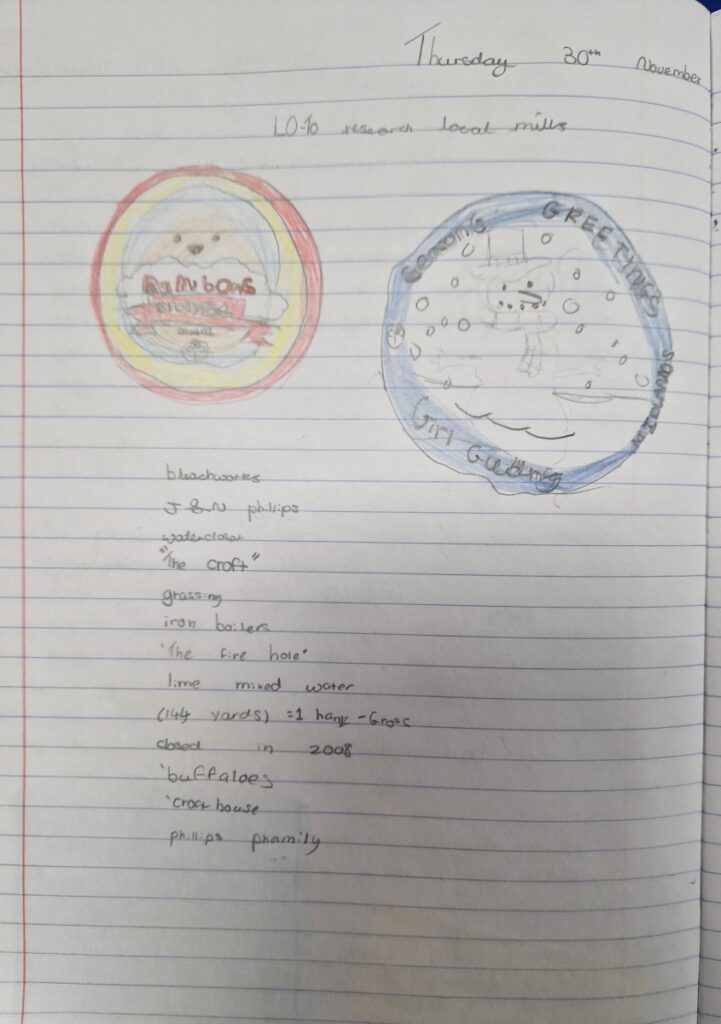 Thursday 30th November
LO-To research local mills
Rainbows
Bronze
award
Seasons
GREETINGS
Girl Guiding
bleachworks
J & N phillips
"The croft"
grassing
iron boilers
'The fire hole'
lime mixed water
(144 yards) =1 hank - Gross
closed in 2008
'buffaloes
'croft house
phillips phamily